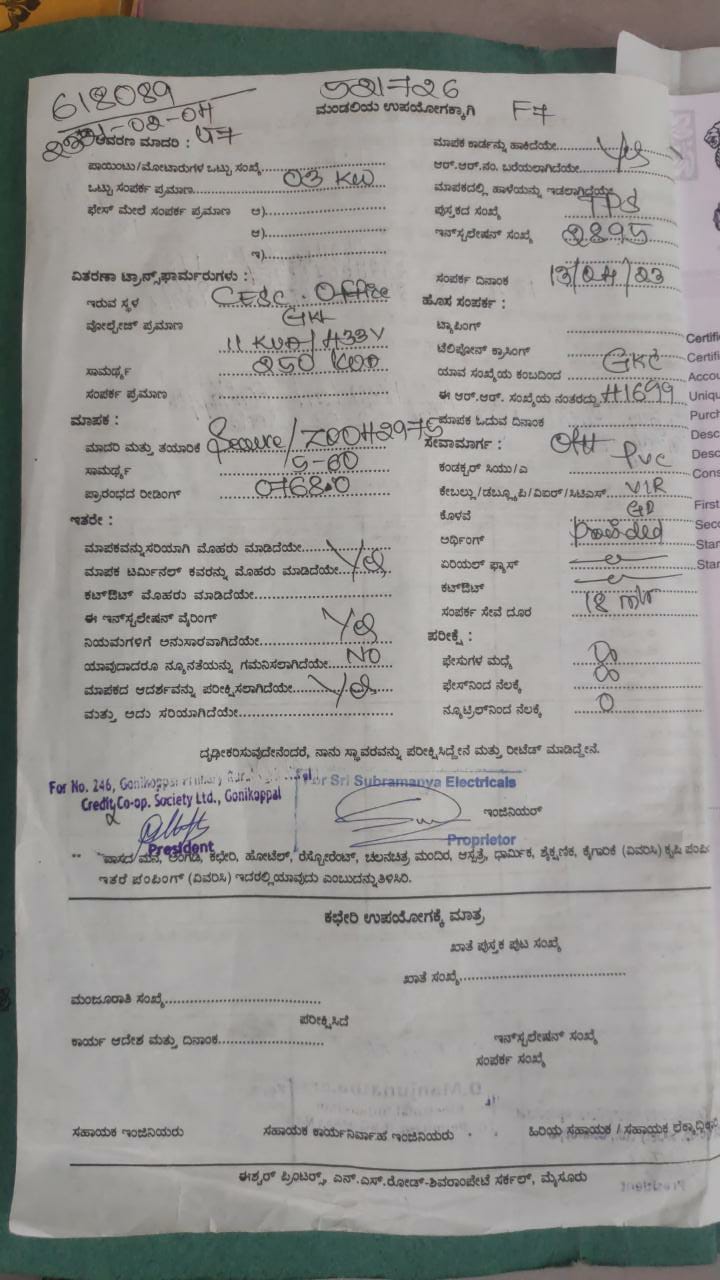 618089
521726
ಮಂಡಲಿಯ ಉಪಯೋಗಕ್ಕಾಗಿ F7
ಆವರಣ ಮಾದರಿ :
ಪಾಯಿಂಟು/ಮೋಟಾರುಗಳ ಒಟ್ಟು ಸಂಖ್ಯೆ
ಒಟ್ಟು ಸಂಪರ್ಕ ಪ್ರಮಾಣ 03 KW
ಫೇಸ್ ಮೇಲೆ ಸಂಪರ್ಕ ಪ್ರಮಾಣ ಅ)
ಆ)
ಇ)
ವಿತರಣಾ ಟ್ರಾನ್ಸ್‌ಫಾರ್ಮರುಗಳು :
ಇರುವ ಸ್ಥಳ CESC. Office
ವೋಲ್ಟೇಜ್ ಪ್ರಮಾಣ
11 KVA/433V
ಸಾಮರ್ಥ್ಯ 250 KVA
ಸಂಪರ್ಕ ಪ್ರಮಾಣ
ಮಾಪಕ :
ಮಾದರಿ ಮತ್ತು ತಯಾರಿಕೆ Secure/
ಸಾಮರ್ಥ್ಯ 5-60
ಪ್ರಾರಂಭದ ರೀಡಿಂಗ್ 0768.0
ಇತರೇ :
ಮಾಪಕವನ್ನು ಸರಿಯಾಗಿ ಮೊಹರು ಮಾಡಿದೆಯೇ
ಮಾಪಕ ಟರ್ಮಿನಲ್ ಕವರನ್ನು ಮೊಹರು ಮಾಡಿದೆಯೇ Yes
ಕಟ್‌ಔಟ್ ಮೊಹರು ಮಾಡಿದೆಯೇ
ಈ ಇನ್‌ಸ್ಟಲೇಷನ್ ವೈರಿಂಗ್
ನಿಯಮಗಳಿಗೆ ಅನುಸಾರವಾಗಿದೆಯೇ Yes
ಯಾವುದಾದರೂ ನ್ಯೂನತೆಯನ್ನು ಗಮನಿಸಲಾಗಿದೆಯೇ NO
ಮಾಪಕದ ಆದರ್ಶವನ್ನು ಪರೀಕ್ಷಿಸಲಾಗಿದೆಯೇ Yes
ಮತ್ತು ಅದು ಸರಿಯಾಗಿದೆಯೇ
ಮಾಪಕ ಕಾರ್ಡನ್ನು ಹಾಕಿದೆಯೇ Yes
ಆರ್.ಆರ್.ನಂ. ಬರೆಯಲಾಗಿದೆಯೇ
ಮಾಪಕದಲ್ಲಿ ಹಾಳೆಯನ್ನು ಇಡಲಾಗಿದೆಯೇ
ಪುಸ್ತಕದ ಸಂಖ್ಯೆ
ಇನ್‌ಸ್ಟಲೇಷನ್ ಸಂಖ್ಯೆ 2895
ಸಂಪರ್ಕ ದಿನಾಂಕ 13/04/23
ಹೊಸ ಸಂಪರ್ಕ :
ಟ್ಯಾಪಿಂಗ್
ಟೆಲಿಫೋನ್ ಕ್ರಾಸಿಂಗ್
ಯಾವ ಸಂಖ್ಯೆಯ ಕಂಬದಿಂದ
ಈ ಆರ್.ಆರ್. ಸಂಖ್ಯೆಯ ನಂತರದ್ದು 41699
ಮಾಪಕ ಓದುವ ದಿನಾಂಕ
ಸೇವಾಮಾರ್ಗ : OH
ಕಂಡಕ್ಟರ್ ಸಿಯು/ಎ PVC
ಕೇಬಲ್ಲು/ಡಬ್ಲ್ಯೂಪಿ/ವಿಐರ್/ಸಿಟಿಎಸ್ VIR
ಕೊಳವೆ GI
ಅರ್ಥಿಂಗ್ Provided
ಏರಿಯಲ್ ಫ್ಯೂಸ್
ಕಟ್‌ಔಟ್
ಸಂಪರ್ಕ ಸೇವೆ ದೂರ 18 mtr
ಪರೀಕ್ಷೆ :
ಫೇಸುಗಳ ಮಧ್ಯೆ
ಫೇಸ್‌ನಿಂದ ನೆಲಕ್ಕೆ
ನ್ಯೂಟ್ರಲ್‌ನಿಂದ ನೆಲಕ್ಕೆ 0
ದೃಢೀಕರಿಸುವುದೇನೆಂದರೆ, ನಾನು ಸ್ಥಾವರವನ್ನು ಪರೀಕ್ಷಿಸಿದ್ದೇನೆ ಮತ್ತು ರೀಟೆಡ್ ಮಾಡಿದ್ದೇನೆ.
For No. 246, Gonikoppal Primary
Credit Co-op. Society Ltd., Gonikoppal
President
For Sri Subramanya Electricals
ಇಂಜಿನಿಯರ್
Proprietor
** ವಾಸದ ಮನೆ, ಅಂಗಡಿ, ಕಛೇರಿ, ಹೋಟೆಲ್, ರೆಸ್ಟೋರೆಂಟ್, ಚಲನಚಿತ್ರ ಮಂದಿರ, ಆಸ್ಪತ್ರೆ, ಧಾರ್ಮಿಕ, ಶೈಕ್ಷಣಿಕ, ಕೈಗಾರಿಕೆ (ವಿವರಿಸಿ) ಕೃಷಿ ಪಂಪಿಂ
ಇತರೆ ಪಂಪಿಂಗ್ (ವಿವರಿಸಿ) ಇದರಲ್ಲಿಯಾವುದು ಎಂಬುದನ್ನು ತಿಳಿಸಿರಿ.
ಕಛೇರಿ ಉಪಯೋಗಕ್ಕೆ ಮಾತ್ರ
ಖಾತೆ ಪುಸ್ತಕ ಪುಟ ಸಂಖ್ಯೆ
ಖಾತೆ ಸಂಖ್ಯೆ
ಮಂಜೂರಾತಿ ಸಂಖ್ಯೆ
ಪರೀಕ್ಷಿಸಿದೆ
ಕಾರ್ಯ ಆದೇಶ ಮತ್ತು ದಿನಾಂಕ
ಇನ್‌ಸ್ಟಲೇಷನ್ ಸಂಖ್ಯೆ
ಸಂಪರ್ಕ ಸಂಖ್ಯೆ
ಸಹಾಯಕ ಇಂಜಿನಿಯರು ಸಹಾಯಕ ಕಾರ್ಯನಿರ್ವಾಹ ಇಂಜಿನಿಯರು ಹಿರಿಯ ಸಹಾಯಕ / ಸಹಾಯಕ
ಈಶ್ವರ್ ಪ್ರಿಂಟರ್ಸ್, ಎನ್.ಎಸ್.ರೋಡ್-ಶಿವರಾಂಪೇಟೆ ಸರ್ಕಲ್, ಮೈಸೂರು
Certifi
Certifi
Accou
Uniqu
Purch
Desc
Desc
Cons
First
Seco
Star
Star